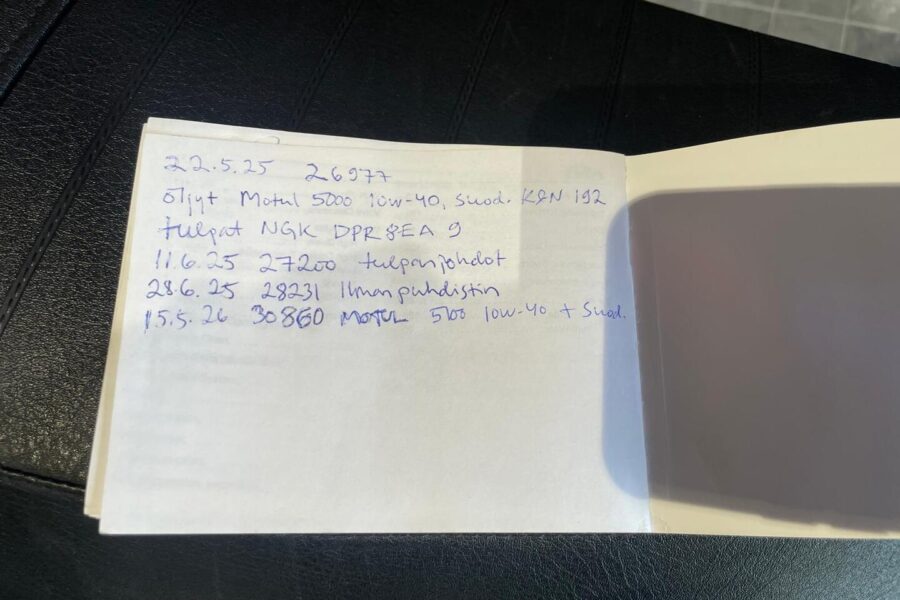 22.5.25 26977
öljyt Motul 5000 10w-40, suod. K&N 192
tulpat NGK DPR8EA 9
11.6.25 27200 tulpanjohdot
28.6.25 28231 Ilmanpuhdistin
15.5.26 30860 MOTUL 5100 10w-40 + Suod.